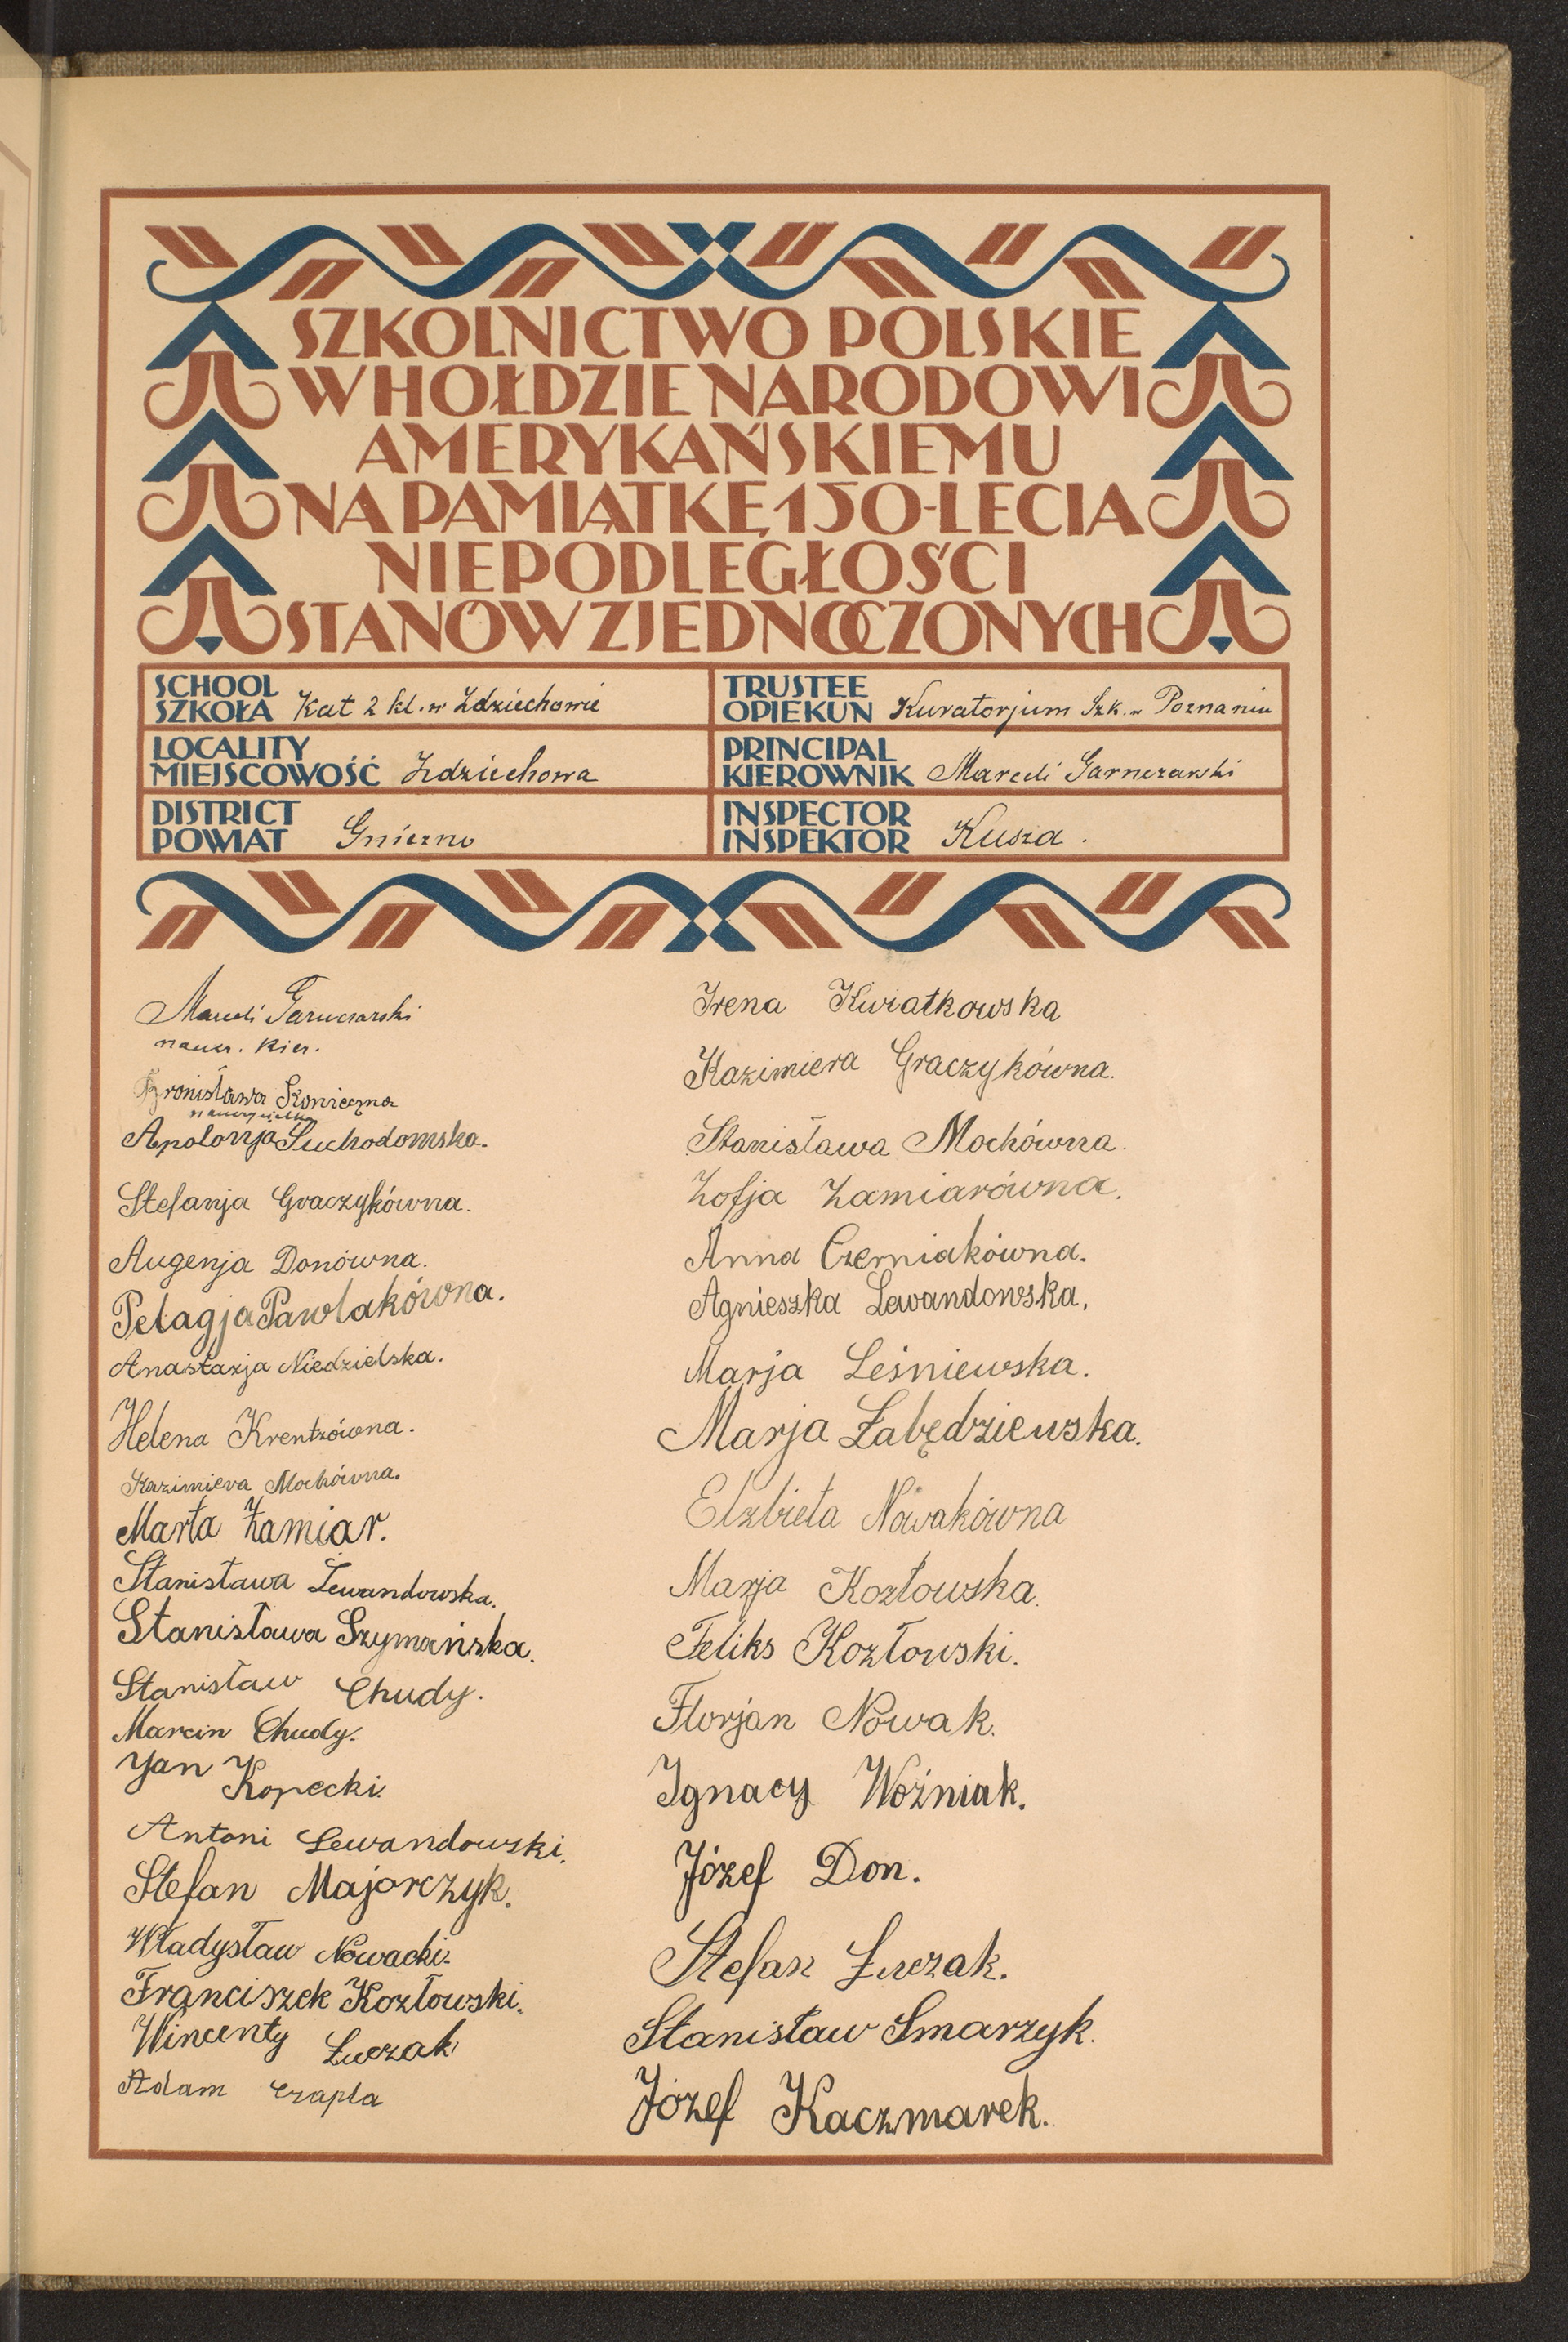 SZKOLNICTWO POLSKIE
W HOŁDZIE NARODOWI
AMERYKAŃSKIEMU
NA PAMIĄTKĘ 150-LECIA
NIEPODLEGŁOŚCI
STANÓW ZJEDNOCZONYCH
SCHOOL
SZKOŁA Kat 2 kl. w Zdziechowie
TRUSTEE
OPIEKUN Kuratorjum Szk. - Poznaniu
LOCALITY
MIEJSCOWOŚĆ Zdziechowa
PRINCIPAL
KIEROWNIK Marceli Garnczarski
DISTRICT
POWIAT Gniezno
INSPECTOR
INSPEKTOR Kusza.
Marceli Garnczarski
naucz. kier.
Bronisława Konieczna
nauczycielka
Apolonja Suchodomska.
Stefanja Graczykówna.
Augenja Donówna.
Pelagja Pawlakówna.
Anastazja Niedzielska.
Helena Krentzówna.
Kazimiera Mochówna.
Marta Zamiar.
Stanisława Lewandowska.
Stanisława Szymańska.
Stanisław Chudy.
Marcin Chudy.
Jan Kopecki.
Antoni Lewandowski.
Stefan Majorczyk.
Władysław Nowacki.
Franciszek Kozłowski.
Wincenty Łuczak
Adam Czapla
Irena Kwiatkowska
Kazimiera Graczykówna.
Stanisława Mochówna.
Zofja Zamiarówna.
Anna Czerniakówna.
Agnieszka Lewandowska.
Marja Leśniewska.
Marja Łabędziewska.
Elzbieta Nowakówna
Marja Kozłowska.
Feliks Kozłowski.
Florjan Nowak.
Ignacy Woźniak.
Józef Don.
Stefan Łuczak.
Stanisław Smarzyk.
Józef Kaczmarek.